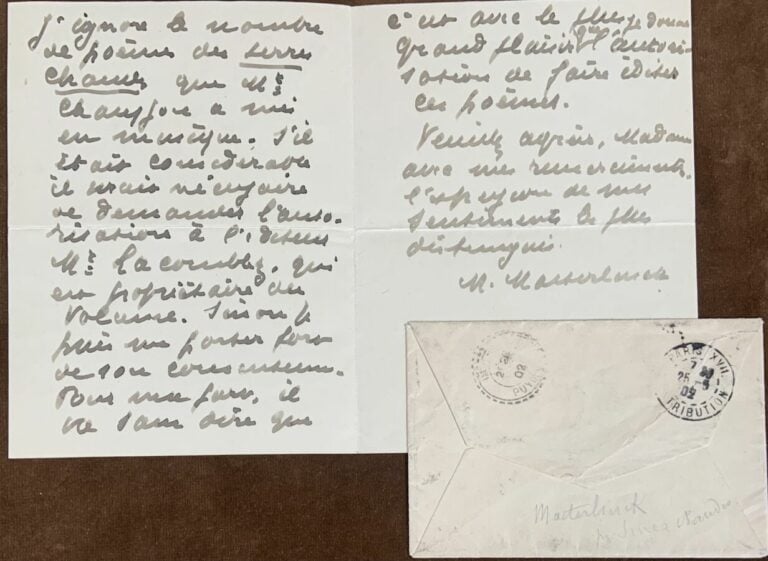 J'ignore le nombre
de poèmes des Serres
Chaudes que Mr
Chausson a mis
en musique. S'il
était considérable
il serait nécessaire
de demander l'auto-
risation à l'éditeur
Mr Lacomblez, qui
est propriétaire du
volume. Sinon je
puis me porter fort
de son consentement.
Pour ma part, il
va sans dire que
c'est avec le plus
grand plaisir que je donne l'autori-
sation de faire éditer
ces poèmes.
Veuillez agréer, Madame
avec mes remerciements,
l'expression de mes
sentiments les plus
distingués.
M. Maeterlinck
PARIS XVII
7
25 - 5
02
DISTRIBUTION
02
Maeterlinck
Serres Chaudes